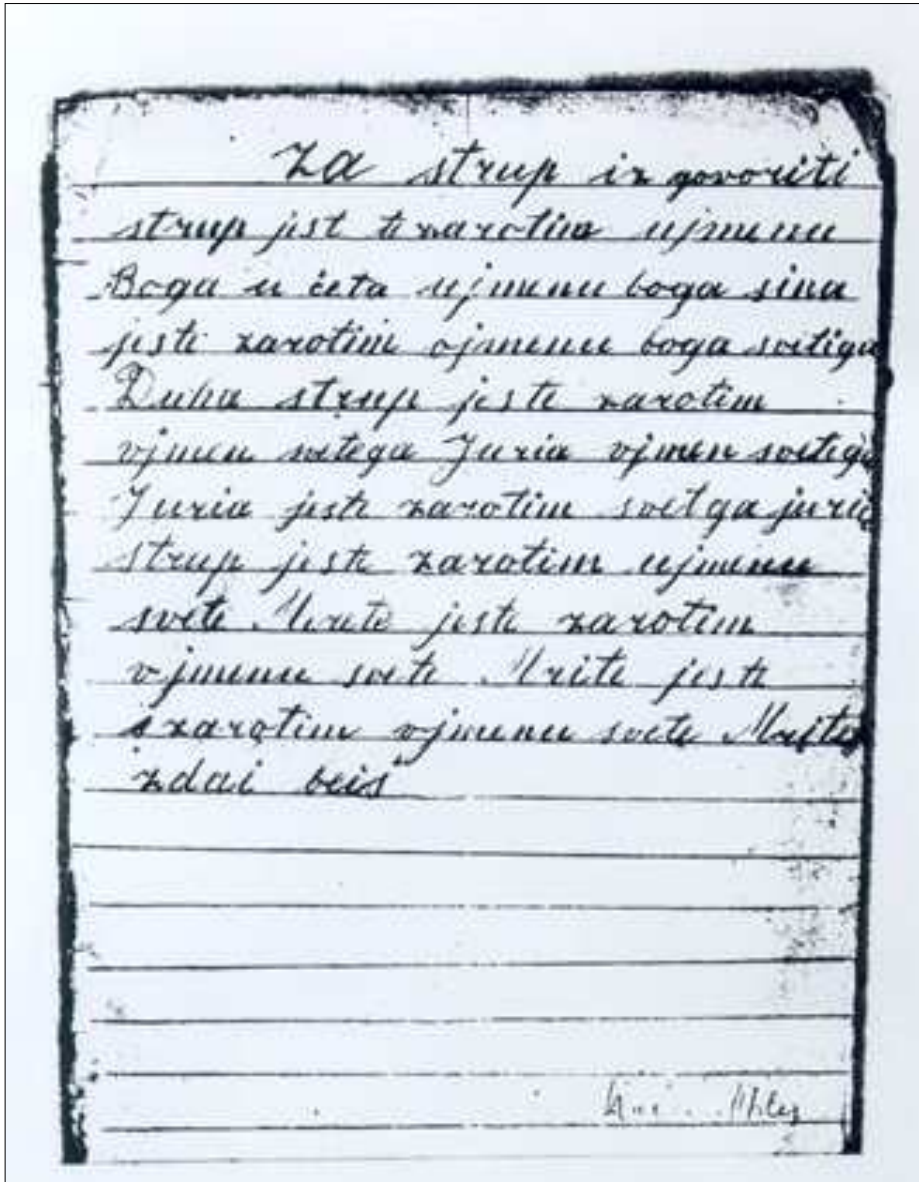 Za strup iz govoriti
strup jest ti zarotim ujmenu
Boga u četa ujmenu boga sina
jesti zarotim ojmenu boga svetiga
Duha strup jesti zarotim
vjmen svetega Juria vjmen svetiga
Juria jesti zarotim svetga juria
strup jesti zarotim ujmenu
svete Mrete jesti zarotim
vjmenu svete Mrite jesti
zarotim vjmenu svete Mrite
zdai beiš